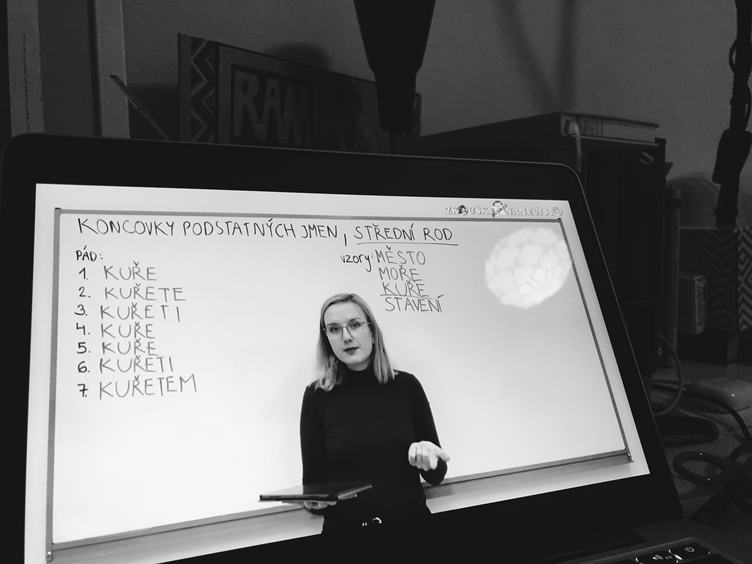 RAW
ZKOUŠKY NANEČISTO
KONCOVKY PODSTATNÝCH JMEN, STŘEDNÍ ROD
PÁD:
1. KUŘE
2. KUŘETE
3. KUŘETI
4. KUŘE
5. KUŘE
6. KUŘETI
7. KUŘETEM
vzory: MĚSTO
MOŘE
KUŘE
STAVENÍ